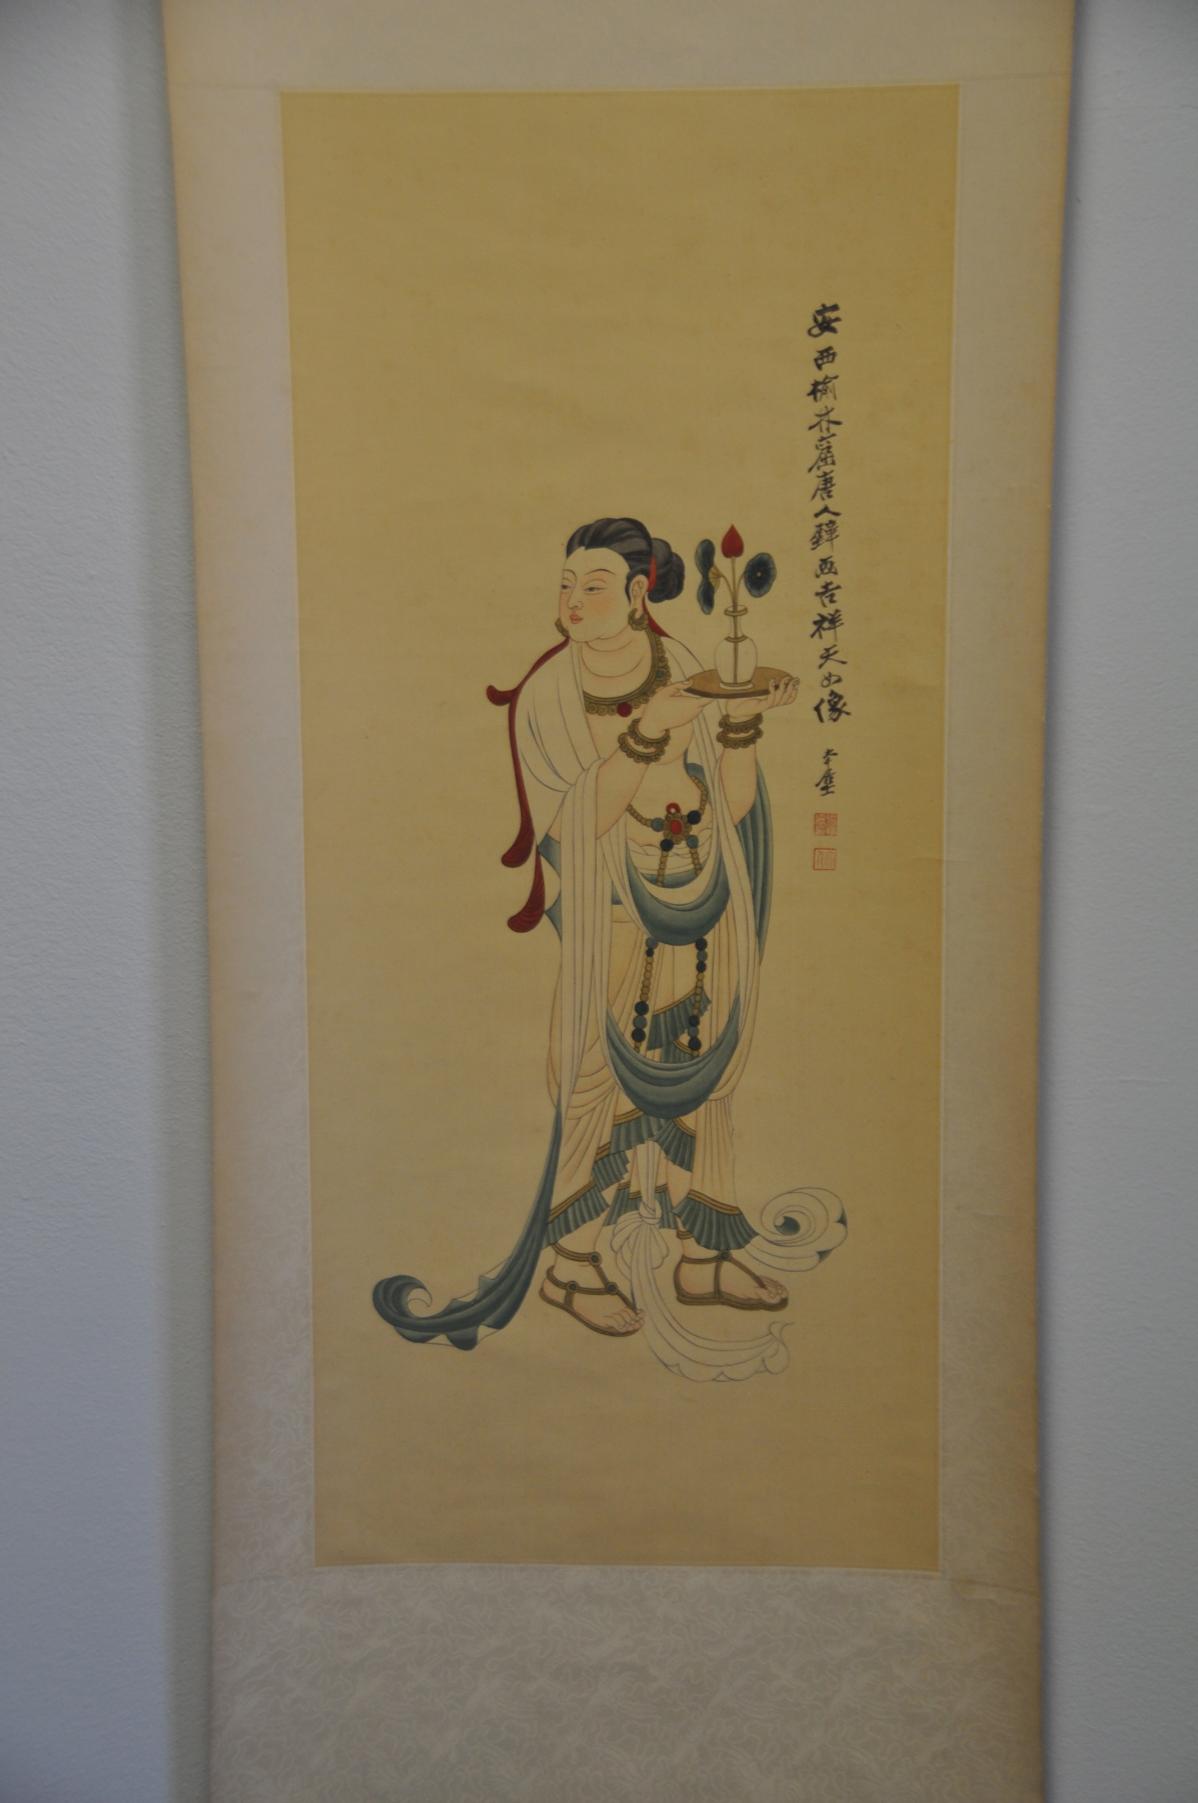 安西榆林窟唐人壁画吉祥天女像
本塵